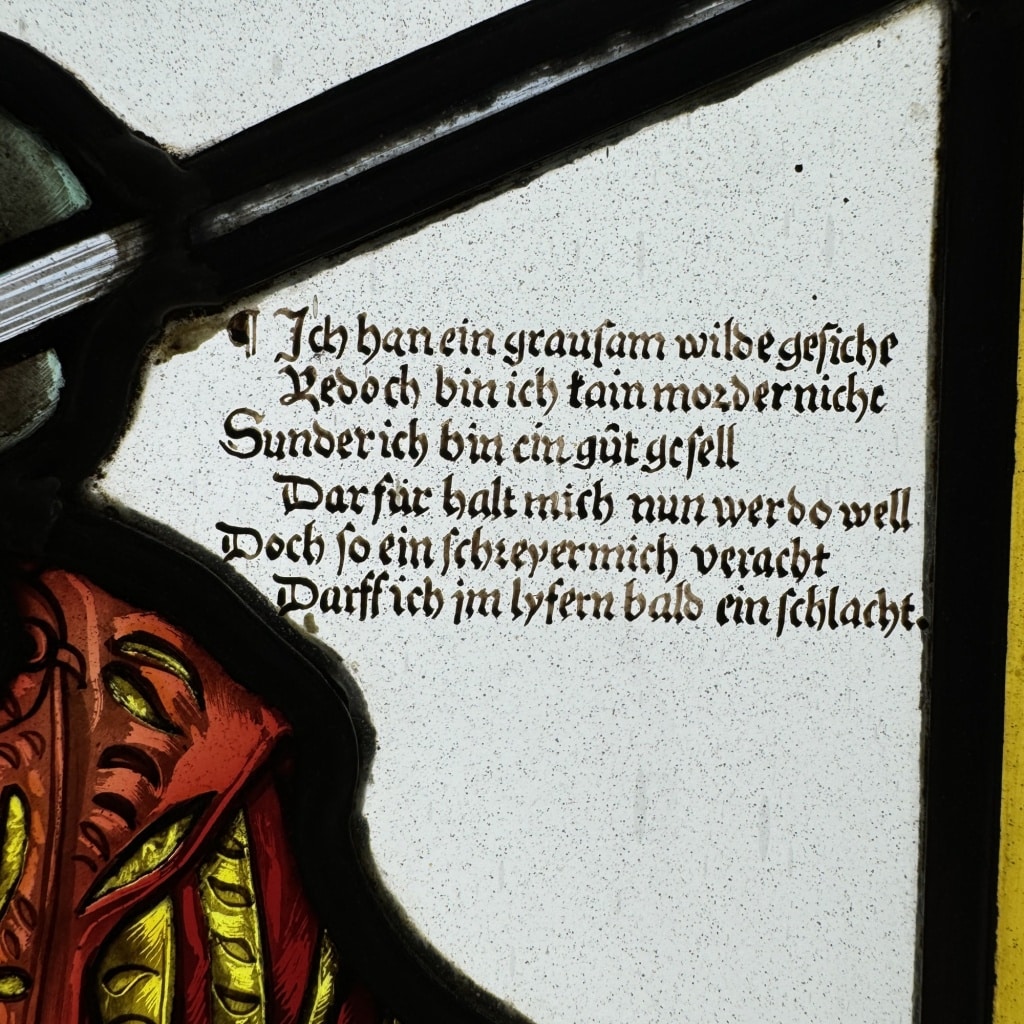 ¶ Ich han ein grausam wilde gesicht
Yedoch bin ich kain morder nicht
Sunder ich bin ein gůt gesell
Dar für halt mich nun wer do well
Doch so ein schreyer mich veracht
Darff ich jm lyfern bald ein schlacht.